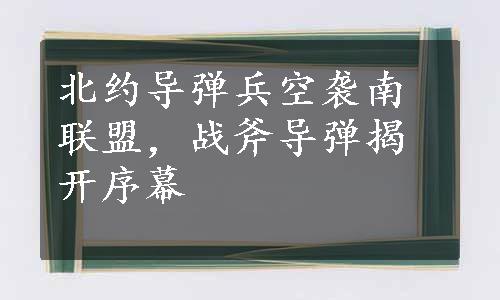 北约导弹兵空袭南
联盟，战斧导弹揭
开序幕